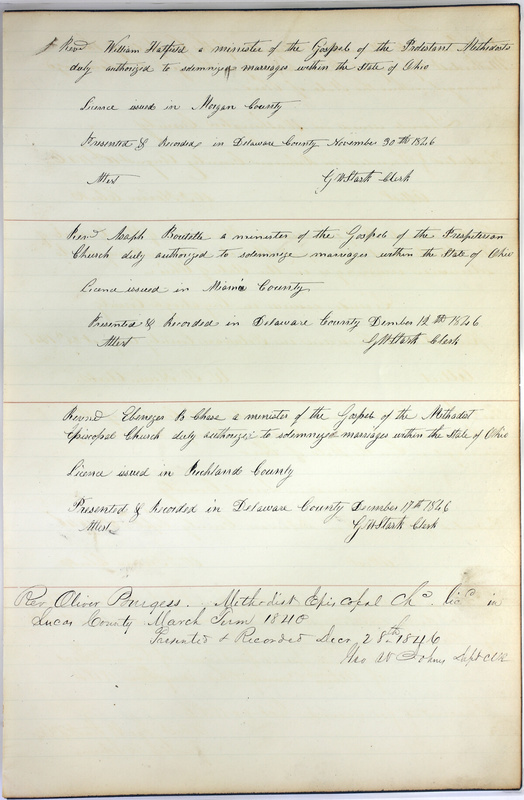 Revd William Hatfield a minister of the Gospel of the Protestant Methodists
duly authorized to solemnize marriages within the State of Ohio
Licence issued in Morgan County
Presented & Recorded in Delaware County November 30th 1846
Attest G W Stark Clerk
Revd Asaph Boutelle a minister of the Gospel of the Presbyterian
Church duly authorized to solemnize marriages within the State of Ohio
Licence issued in County
Presented & Recorded in Delaware County Dember 12th 1846
Attest G W Stark Clerk
Revnd Ebenezer B Chase a minister of the Gospel of the Methodist
Episcopal Church duly authorized to solemnize marriages within the State of Ohio
Licence issued in Richland County
Presented & Recorded in Delaware County December 17th 1846
Attest G W Stark Clerk
Rev Oliver Burgess. Methodist Episcopal Ch. Lic. in
Lucas County March Term 1840
Presented & Recorded Decr 28th 1846